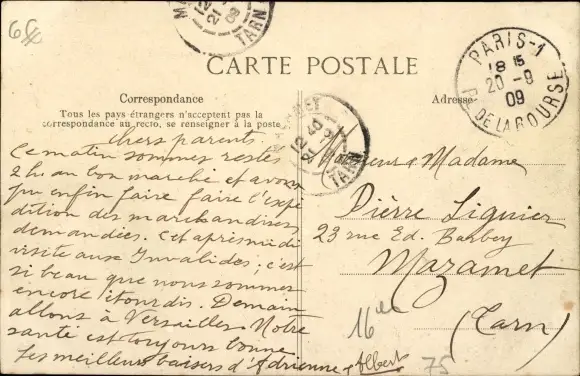 65c
MAZAMET
12 40
21 -9
09
TARN
PARIS-1
18 15
20 -9
09
Pl. DE LA BOURSE
CARTE POSTALE
Correspondance
Tous les pays étrangers n'acceptent pas la
correspondance au recto, se renseigner à la poste
Adresse
MAZAMET
12 40
21 -9
TARN
chers parents.
Ce matin sommes restés
2 h. au bon marché et avons
pu enfin faire faire l'expé
dition des marchandises
demandées. Cet après midi
visite aux Invalides; c'est
si beau que nous sommes
encore étourdis. Demain
allons à Versailles. Notre
santé est toujours bonne
Les meilleurs baisers d'Adrienne & Albert
Monsieur & Madame
Pierre Liguier
23 rue Ed. Barbey
Mazamet
(Tarn)
75